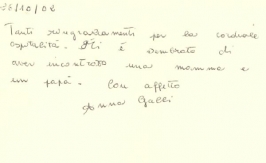 26/10/02
Tanti ringraziamenti per la cordiale
ospitalità. Mi è sembrato di
aver incontrato una mamma e
un papà. Con affetto
Anna Galli